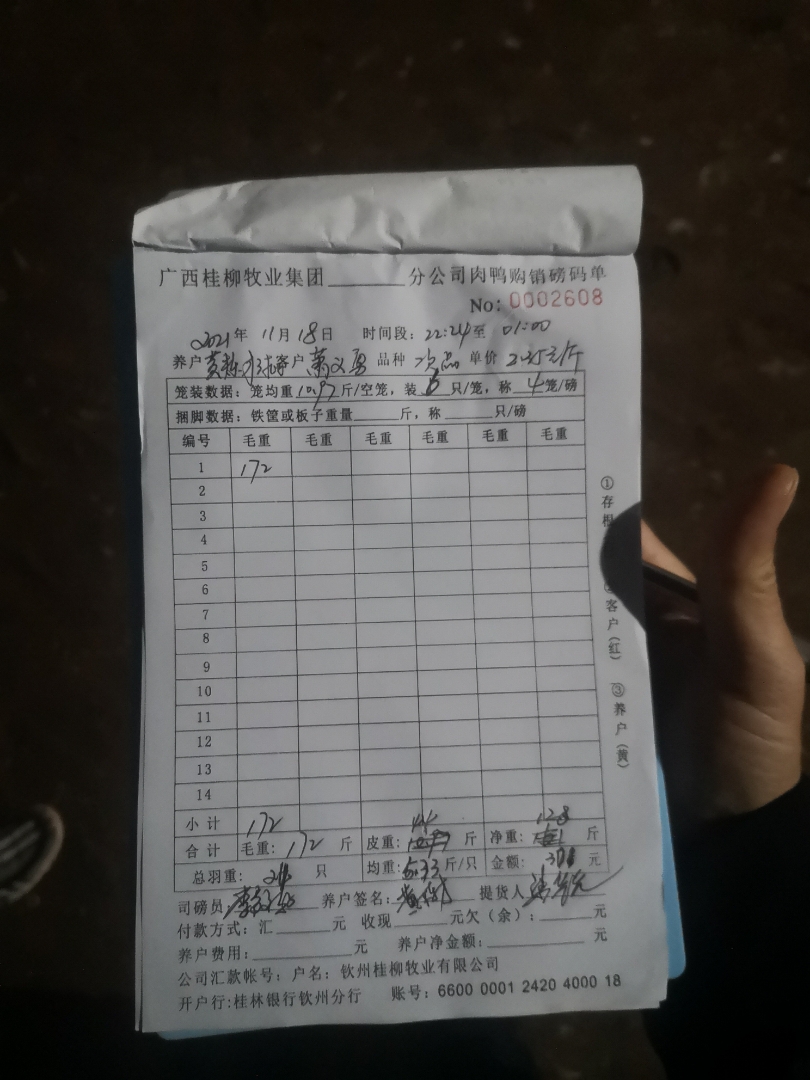 广西桂柳牧业集团______分公司肉鸭购销磅码单
No: 0002608
2021年 11月 18日 时间段: 22:24至 01:00
养户 客户 萧义勇 品种 次品 单价 元/斤
笼装数据: 笼均重10.97斤/空笼, 装6只/笼, 称4笼/磅
捆脚数据: 铁筐或板子重量____斤, 称____只/磅
编号 毛重 毛重 毛重 毛重 毛重 毛重
1 172
2
3
4
5
6
7
8
9
10
11
12
13
14
小计 172 44 128
合计 毛重: 172 斤 皮重: 斤 净重: 斤
总羽重: 24 只 均重: 5.33斤/只 金额: 元
司磅员 养户签名: 提货人
付款方式: 汇____元 收现____元欠(余): ____元
养户费用: ________元 养户净金额: ________元
公司汇款帐号: 户名: 钦州桂柳牧业有限公司
开户行:桂林银行钦州分行 账号: 6600 0001 2420 4000 18
①存根
客户(红)
③养户(黄)